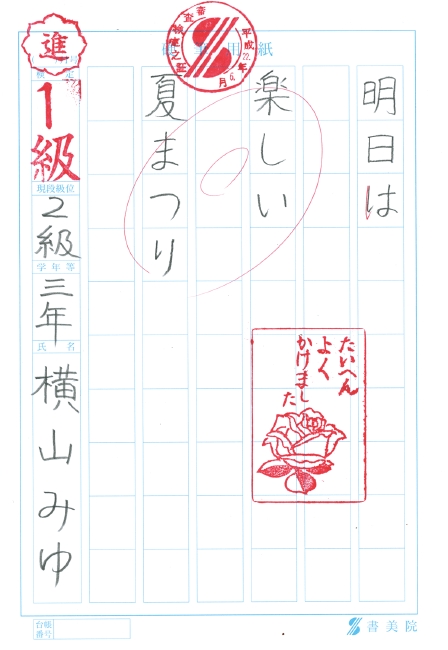 硬筆用紙
審査
検定之証
平成22年6月
明日は
楽しい
夏まつり
進
検定
1級
現段級位
2級
学年等
三年
氏名
横山みゆ
たいへん
よく
かけまし
た
台帳
番号
書美院